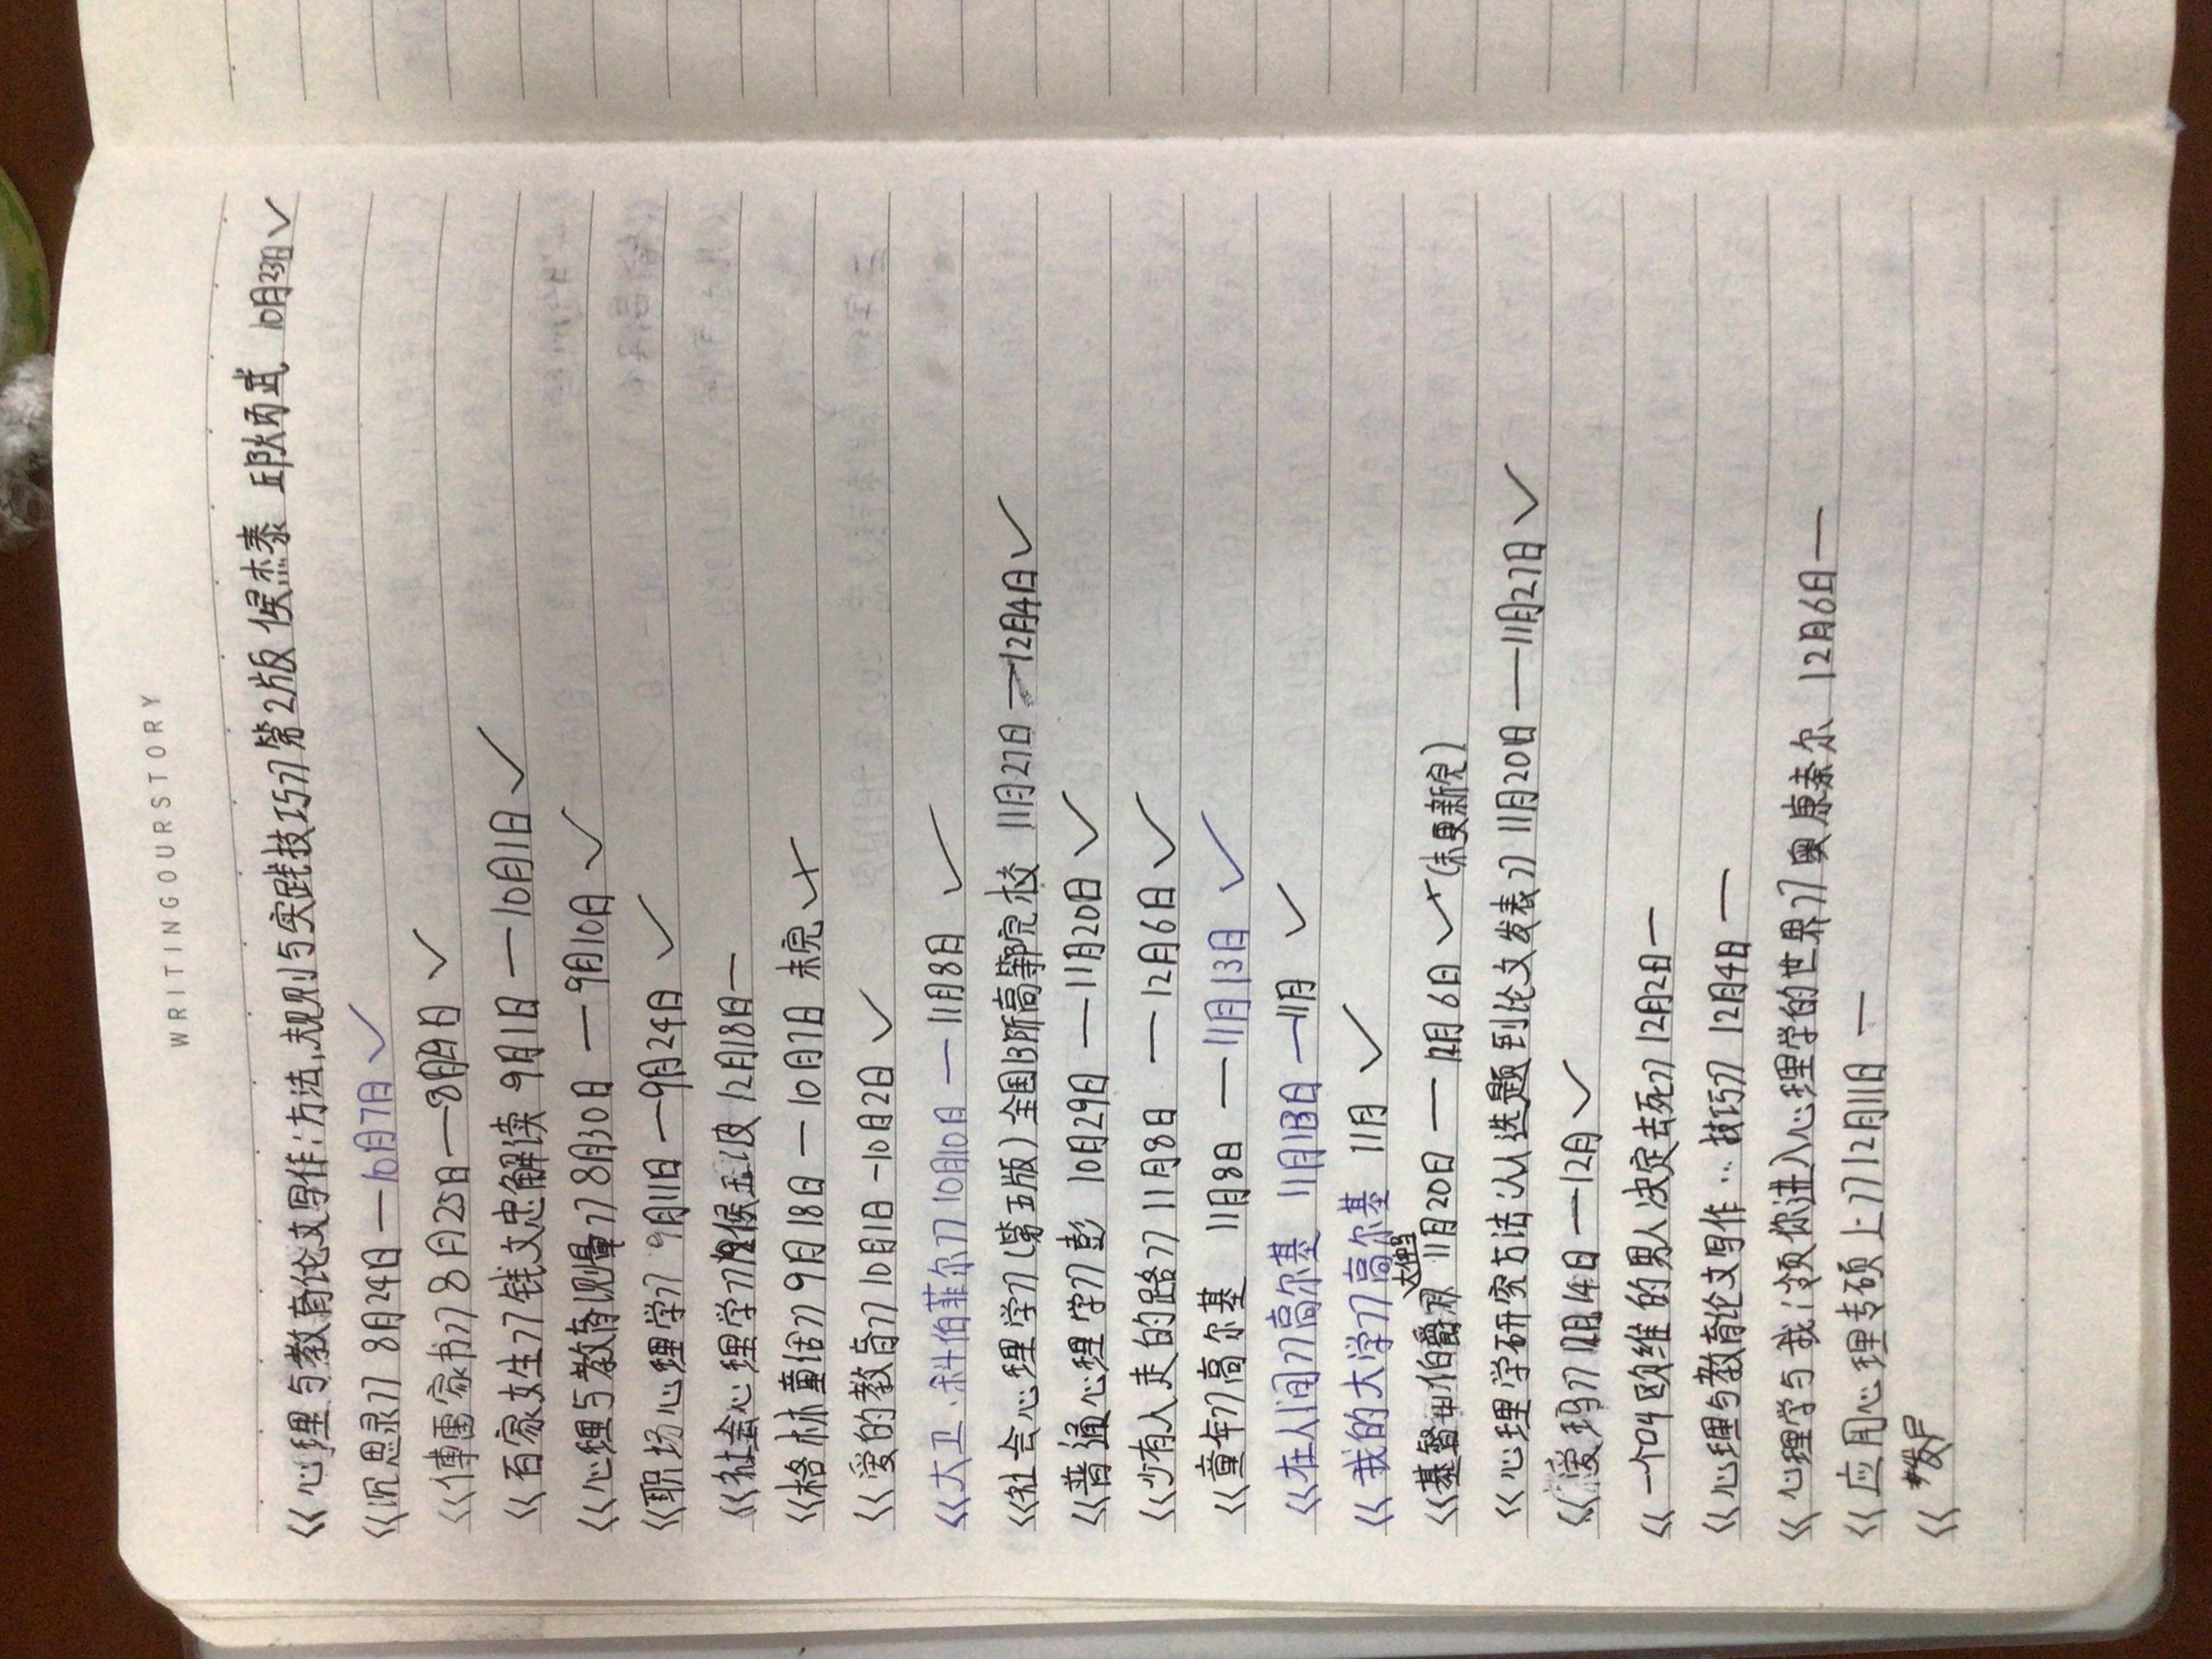 WRITINGOURSTORY
《心理与教育论文写作:方法,规则与实践技巧》第2版 侯杰泰 邱炳武 10月23日✓
《沉思录》8月24日—10月7日✓
《傅雷家书》8月25日—8月29日✓
《百家女生》钱文忠解读 9月1日—10月1日✓
《心理与教育测量》8月30日—9月10日✓
《职场心理学》9月11日—9月24日✓
《社会心理学》侯玉波 12月18日—
《格林童话》9月18日—10月7日 未完
《爱的教育》10月1日-10月2日✓
《大卫·科伯菲尔》10月10日—11月8日✓
《社会心理学》(第五版)全国13所高等院校 11月27日—12月4日✓
《普通心理学》彭 10月29日—11月20日✓
《少有人走的路》11月8日—12月6日✓
《童年》高尔基 11月8日—11月13日✓
《在人间》高尔基 11月13日—11月✓
《我的大学》高尔基 11月✓
《基督山伯爵》大仲马 11月20日—12月6日(未更新完)
《心理学研究方法:从选题到论文发表》11月20日—11月27日✓
《爱玛》12月14日—12月✓
《一个叫欧维的男人决定去死》12月2日—
《心理与教育论文写作…技巧》12月4日—
《心理学与我:领你进入心理学的世界》奥康奈尔 12月6日—
《应用心理专硕上》12月11日—
《